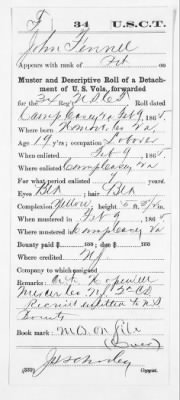 F 34 U.S.C.T.
John Fennell
Appears with rank of Pvt on
Muster and Descriptive Roll of a Detach-
ment of U. S. Vols. forwarded
for the 34 Reg't U.S.C.T. Roll dated
Camp Casey Va Feb 9, 186 5.
Where born Va
Age 19 y'rs; occupation Laborer
When enlisted Feb 9, 186 5.
Where enlisted Camp Casey Va
For what period enlisted years.
Eyes Blk; hair Blk
Complexion Yellow; height 5 ft. in.
When mustered in Feb 9, 186 5.
Where mustered in Camp Casey Va
Bounty paid $ 100; due $ 100
Where credited N.J.
Company to which assigned
Remarks: Hopewell
Mercer Co. N.J.
Recruit entitled to
Bounty
Book mark: M.D. on file
(Over)
(339) Copyist.